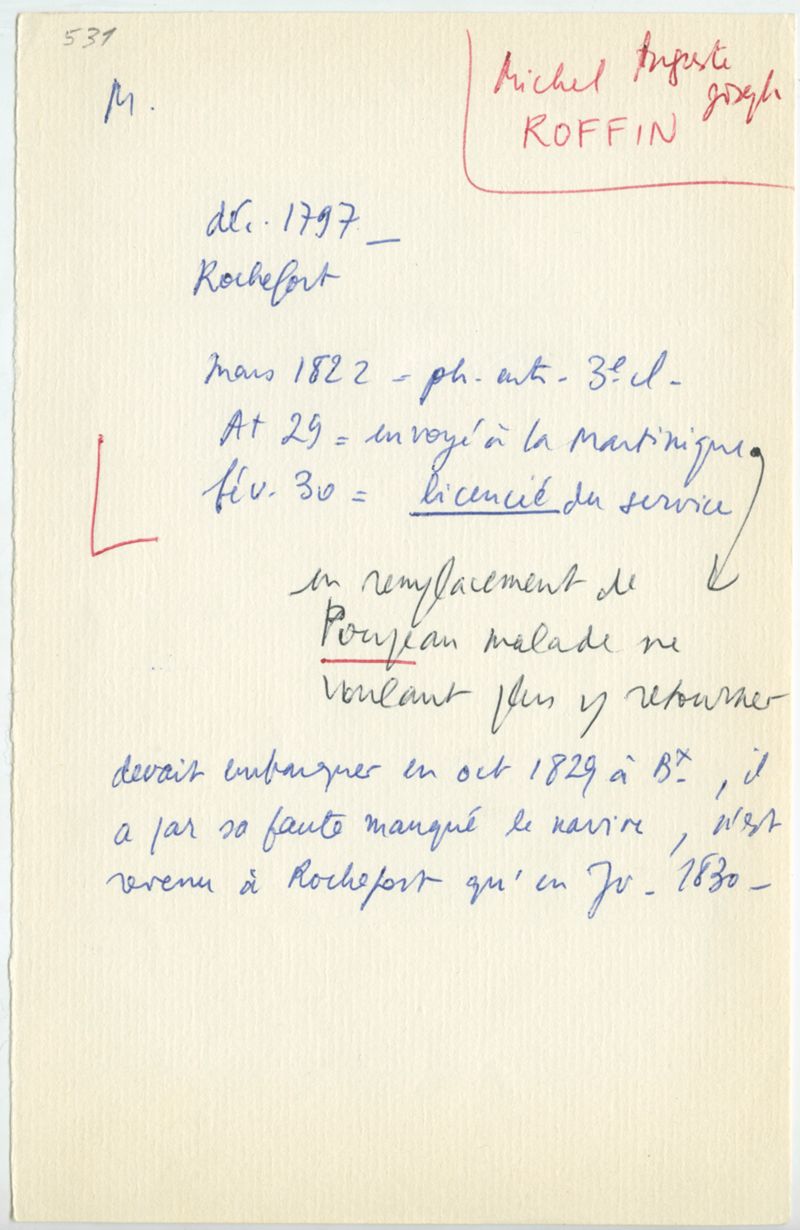 531
M.
Michel Auguste
Joseph
ROFFIN
déc. 1797 _
Rochefort
mars 1822 = ph. 3e cl -
At 29 = envoyé à la Martinique
fév. 30 = licencié du service
en remplacement de
Poujeau malade ne
voulant plus y retourner
devait embarquer en oct 1829 à Bx , il
a par sa faute manqué le navire , n'est
revenu à Rochefort qu'en Jv - 1830 -